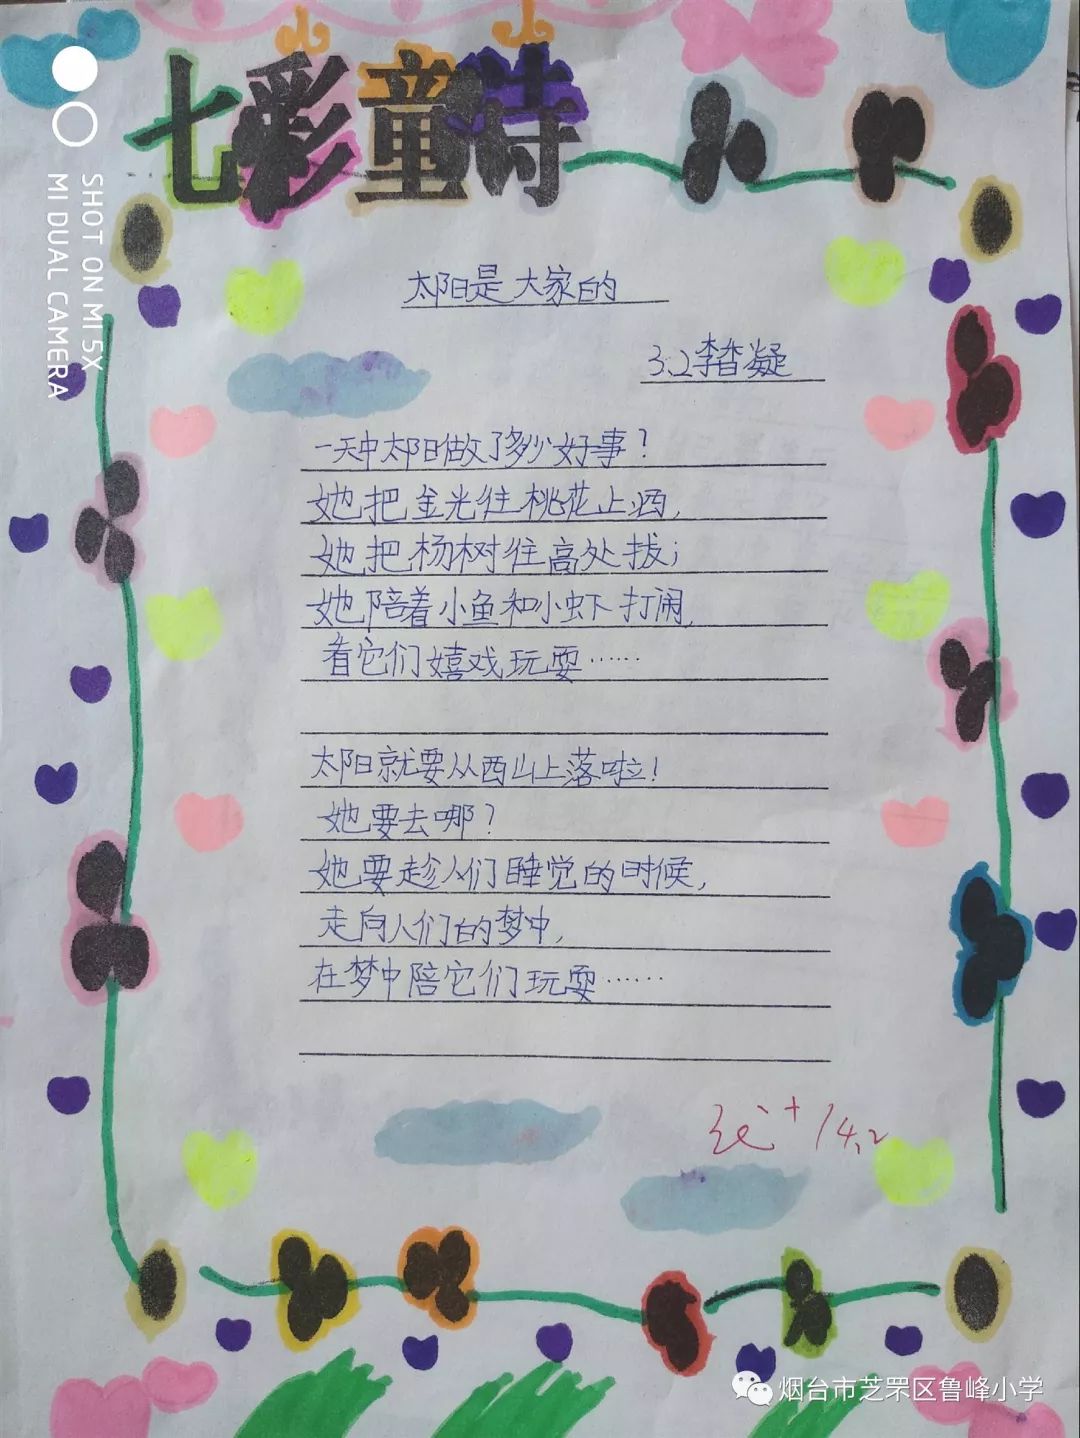 七彩童诗
太阳是大家的
3.2李香凝
一天中太阳做了多少好事?
她把金光往桃花上洒,
她把杨树往高处拔;
她陪着小鱼和小虾打闹,
看它们嬉戏玩耍……
太阳就要从西山上落啦!
她要去哪?
她要趁人们睡觉的时候,
走向人们的梦中,
在梦中陪它们玩耍……
14.2
SHOT ON MI 5X
MI DUAL CAMERA
烟台市芝罘区鲁峰小学